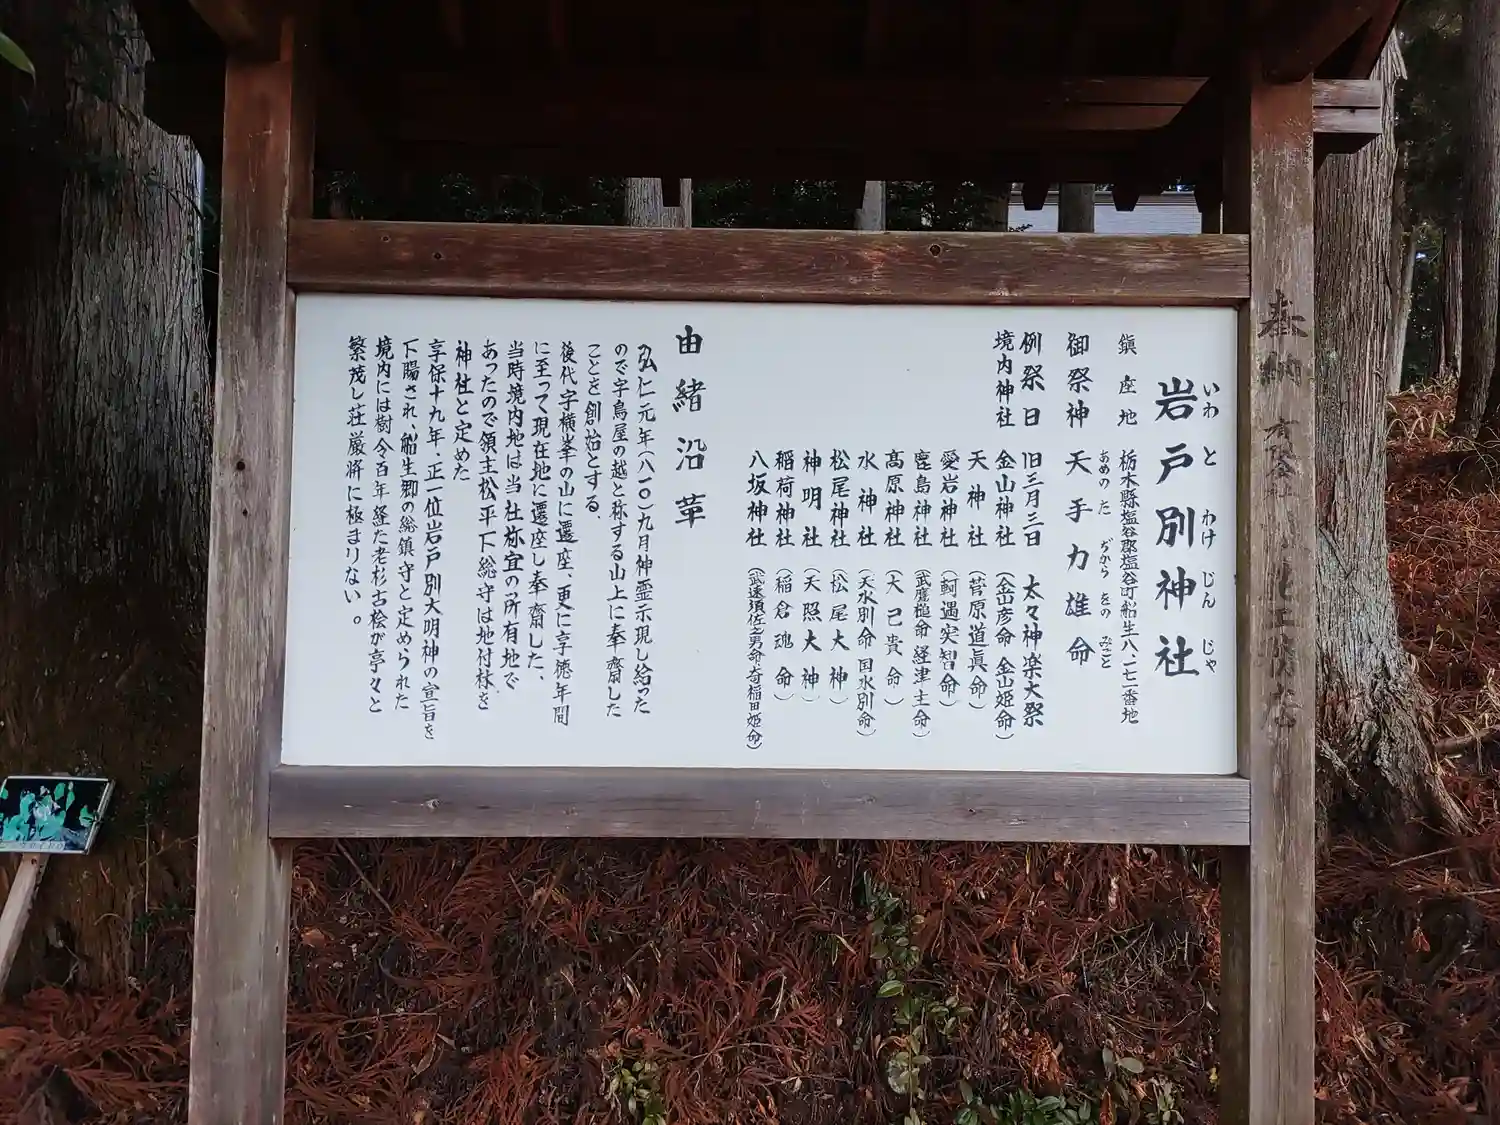 岩戸別神社
いわとわけじんじゃ
鎮座地 栃木縣塩谷郡塩谷町船生八、七一番地
御祭神 天手力雄命
あめのたぢからをのみこと
例祭日 旧三月三日 太々神楽大祭
境内神社 金山神社(金山彦命 金山姫命)
天神社(菅原道眞命)
愛岩神社(軻遇突智命)
鹿島神社(武甕槌命 経津主命)
髙原神社(大己貴命)
水神社(天水別命 国水別命)
松尾神社(松尾大神)
神明社(天照大神)
稲荷神社(稲倉魂命)
八坂神社(武速須佐之男命 奇稲田姫命)
由緒沿革
弘仁元年(八一〇)九月神霊示現し給った
ので字鳥屋の越と称する山上に奉齋した
ことを創始とする、
後代字横峯の山に遷座、更に享徳年間
に至って現在地に遷座し奉齋した、
当時境内地は当社祢宜の所有地で
あったので領主松平下総守は地付林を
神社と定めた
享保十九年、正一位岩戸別大明神の宣旨を
下賜され、船生郷の総鎮守と定められた
境内には樹令百年経た老杉古桧が亭々と
繁茂し荘厳将に極まりない。
奉納